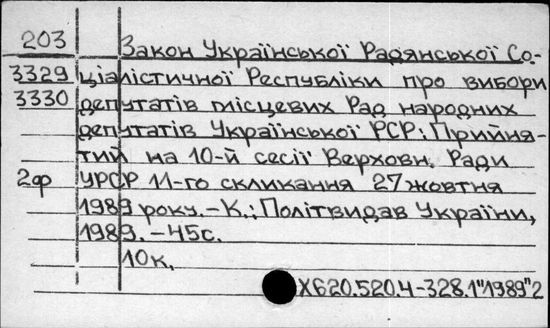 203 Закон Української Радянської Со-
3329 ціалістичної Республіки про вибори
3330 депутатів місцевих Рад народних
депутатів Української РСР: Прийня-
тий на 10-й сесії Верховн. Ради
2ф УРСР 11-го скликання 27 жовтня
1989 року. - К.: Політвидав України,
1989. - 45с.
10к.
Х620.520.4-328.1"1989"2